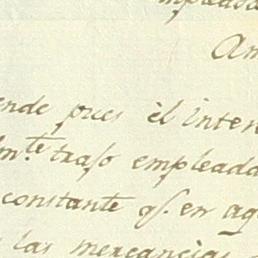 empleada
An
ende pues èl inter
m.te traso empleada
constante qᵉ. en aq
las mercancias